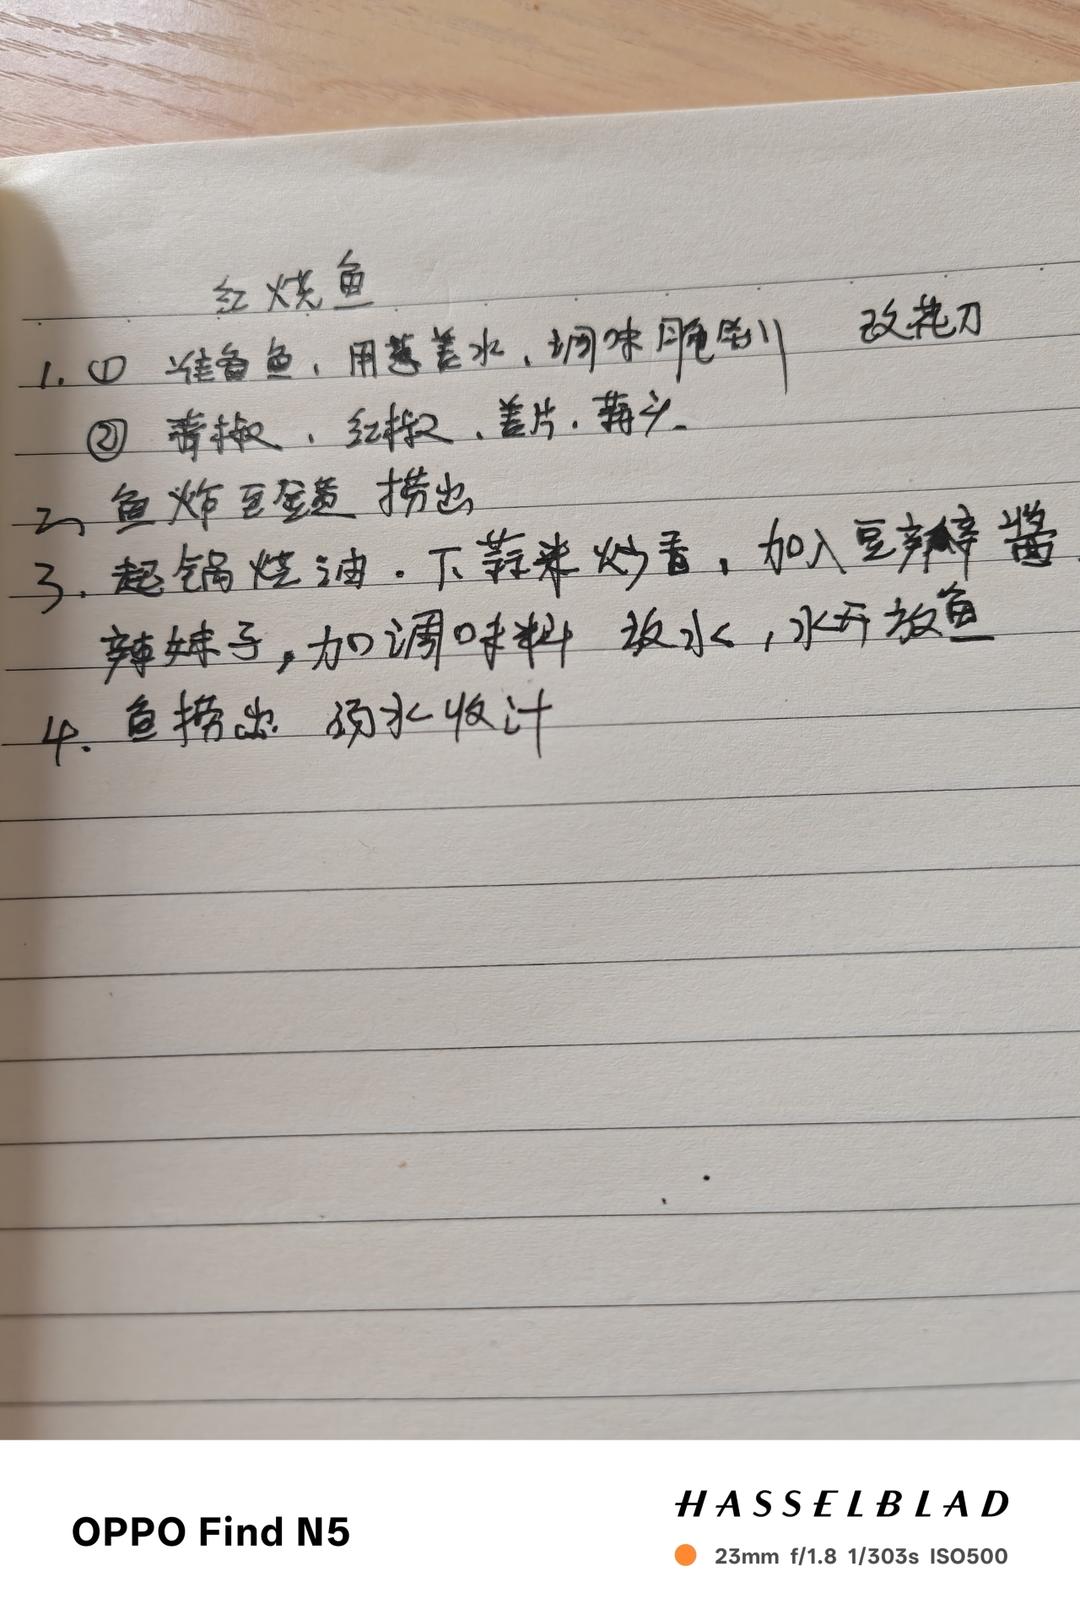 红烧鱼
1. ① 准备鱼，用葱姜水，调味腌制 改花刀
② 青椒，红椒，姜片，蒜头
2、鱼炸至金黄 捞出
3. 起锅烧油．下蒜米炒香，加入豆瓣酱
辣妹子，加调味料 放水，水开放鱼
4. 鱼捞出 汤水收汁
OPPO Find N5
HASSELBLAD
23mm f/1.8 1/303s ISO500